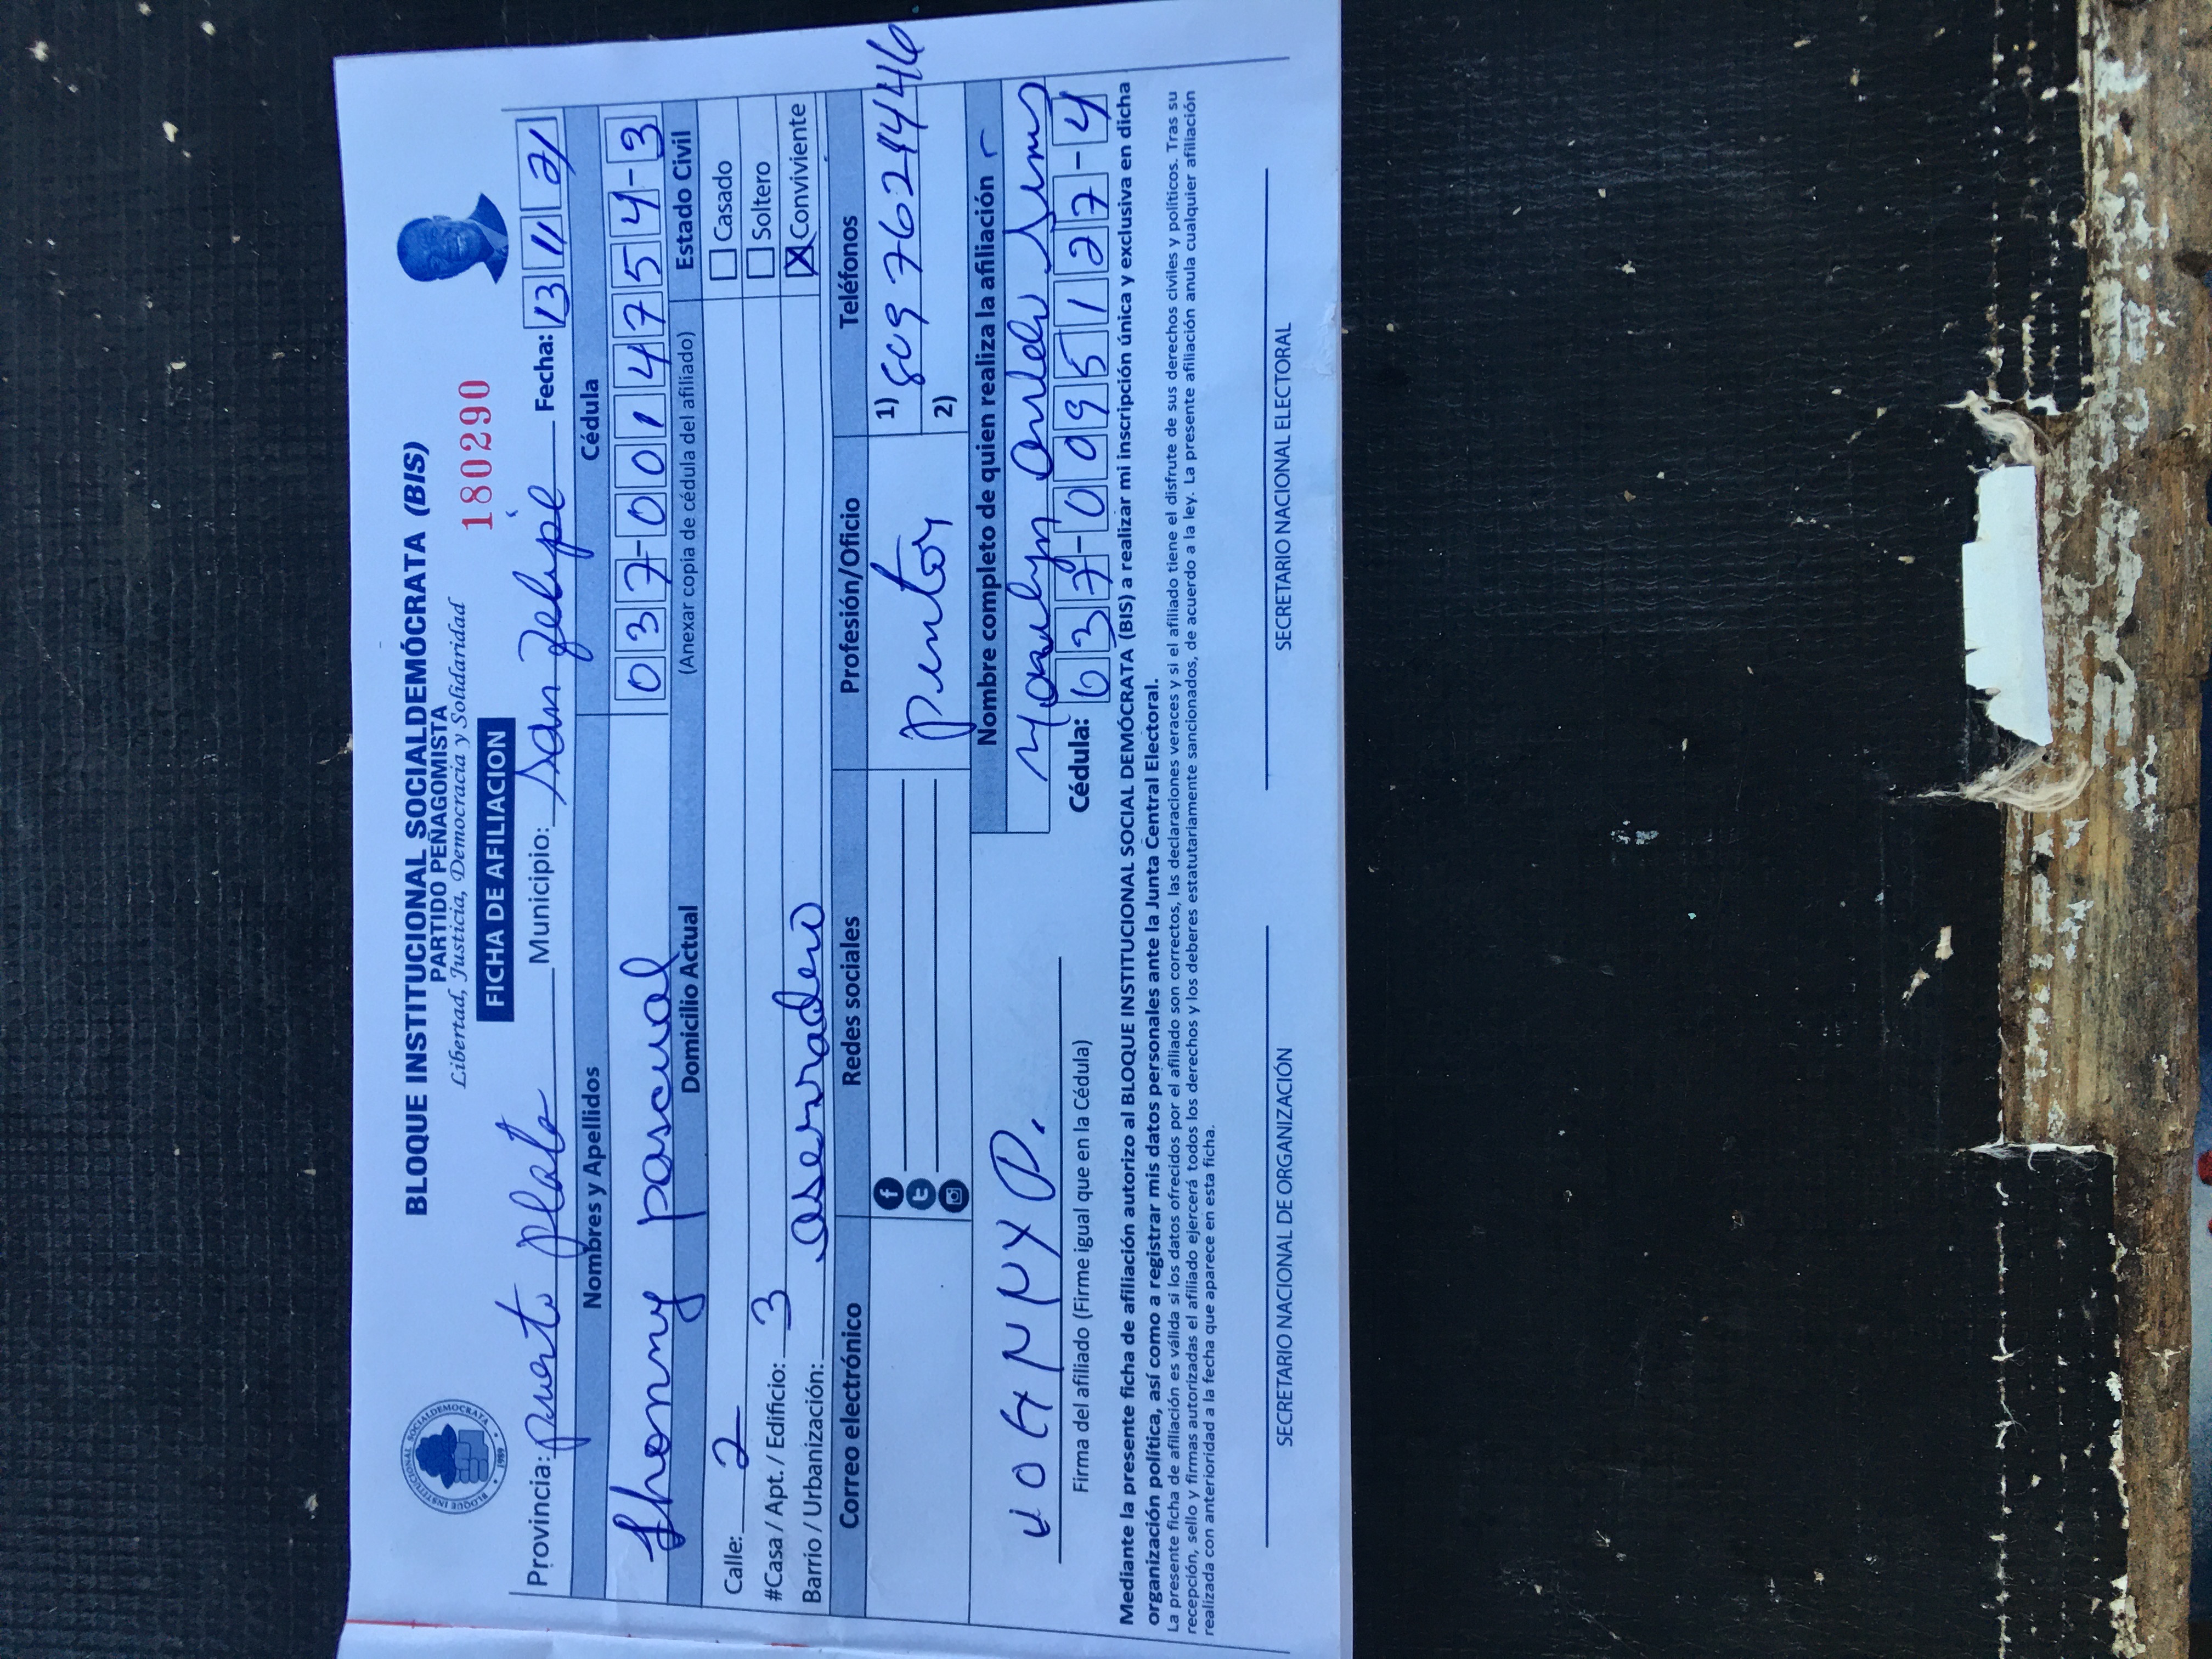 BLOQUE INSTITUCIONAL SOCIALDEMÓCRATA (BIS)
PARTIDO PEÑAGOMISTA
Libertad, Justicia, Democracia y Solidaridad
180290
FICHA DE AFILIACION
Provincia: puerto plata Municipio: san felipe Fecha: 13 11 21
Nombres y Apellidos Cédula
Jhonny pascual 037-0014754-3
Domicilio Actual (Anexar copia de cédula del afiliado) Estado Civil
Calle: 2 Casado
#Casa / Apt. / Edificio: 3 Soltero
Barrio / Urbanización: aserradero X Conviviente
Correo electrónico Redes sociales Profesión/Oficio Teléfonos
pintor 1) 809 7624446
2)
Nombre completo de quien realiza la afiliación
Cédula: 037-0095127-4
Firma del afiliado (Firme igual que en la Cédula)
Mediante la presente ficha de afiliación autorizo al BLOQUE INSTITUCIONAL SOCIAL DEMÓCRATA (BIS) a realizar mi inscripción única y exclusiva en dicha
organización política, así como a registrar mis datos personales ante la Junta Central Electoral.
La presente ficha de afiliación es válida si los datos ofrecidos por el afiliado son correctos, las declaraciones veraces y si el afiliado tiene el disfrute de sus derechos civiles y políticos. Tras su
recepción, sello y firmas autorizadas el afiliado ejercerá todos los derechos y los deberes estatutariamente sancionados, de acuerdo a la ley. La presente afiliación anula cualquier afiliación
realizada con anterioridad a la fecha que aparece en esta ficha.
SECRETARIO NACIONAL DE ORGANIZACIÓN SECRETARIO NACIONAL ELECTORAL
BLOQUE INSTITUCIONAL SOCIALDEMOCRATA
1989